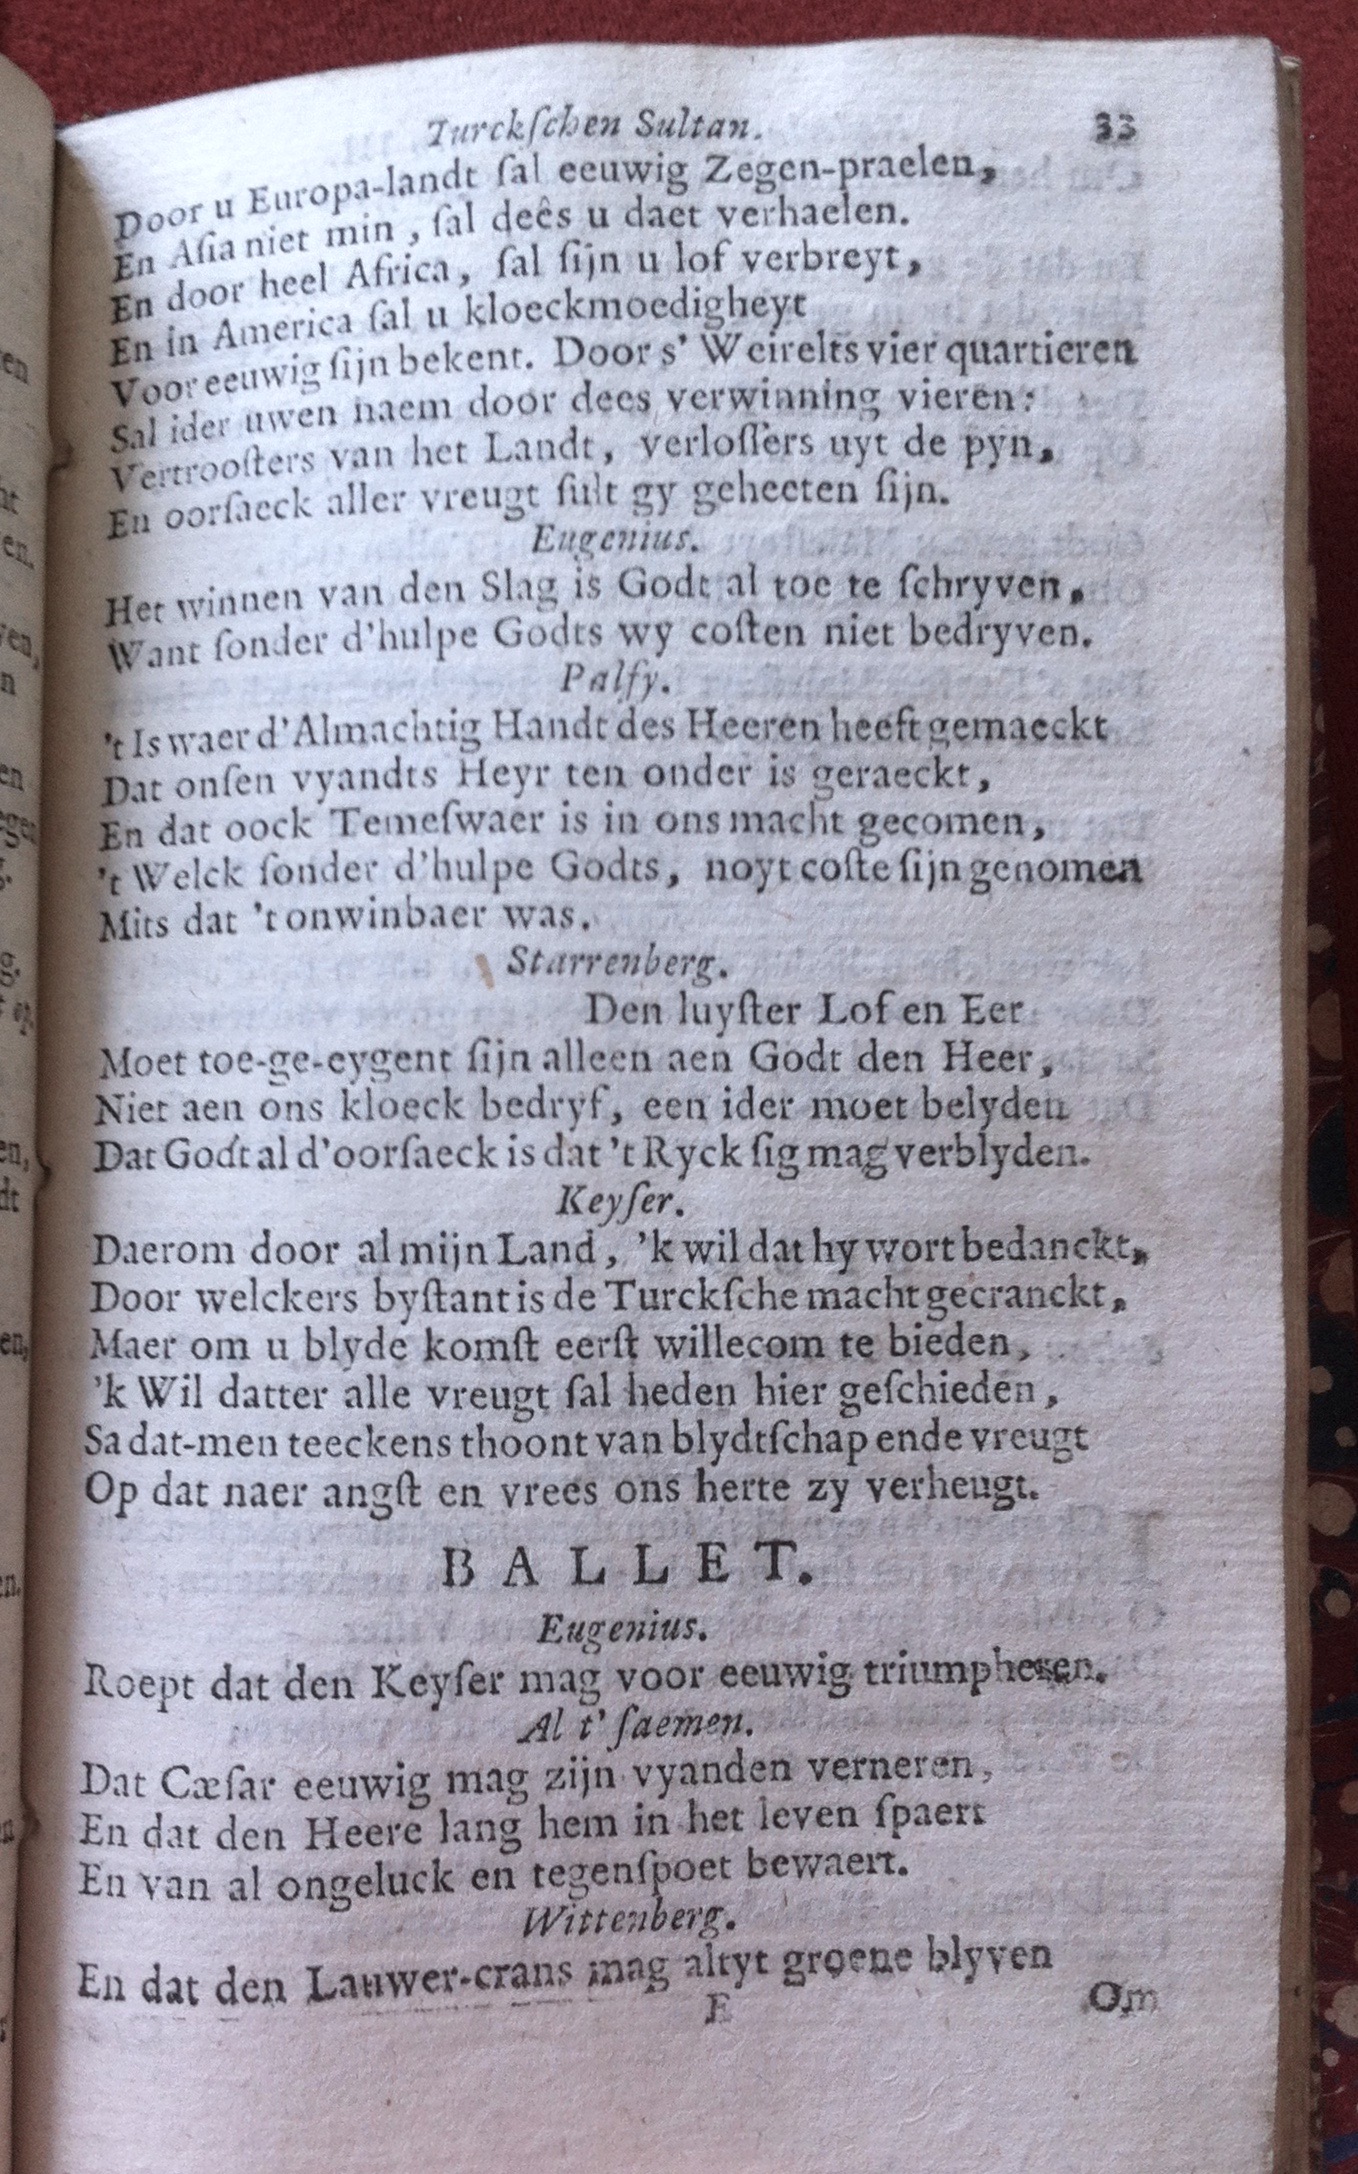 Turckſchen Sultan. 33
Door u Europa-landt ſal eeuwig Zegen-praelen,
En Aſia niet min, ſal deês u daet verhaelen.
En door heel Africa, ſal ſijn u lof verbreyt,
En in America ſal u kloeckmoedigheyt
Voor eeuwig ſijn bekent. Door s' Weirelts vier quartieren
Sal ider uwen naem door dees verwinning vieren:
Vertrooſters van het Landt, verloſſers uyt de pyn,
En oorſaeck aller vreugt ſult gy geheeten ſijn.
Eugenius.
Het winnen van den Slag is Godt al toe te ſchryven,
Want ſonder d'hulpe Godts wy coſten niet bedryven.
Palfy.
't Is waer d'Almachtig Handt des Heeren heeft gemaeckt
Dat onſen vyandts Heyr ten onder is geraeckt,
En dat oock Temeſwaer is in ons macht gecomen,
't Welck ſonder d'hulpe Godts, noyt coſte ſijn genomen
Mits dat 't onwinbaer was.
Starrenberg.
Den luyſter Lof en Eer
Moet toe-ge-eygent ſijn alleen aen Godt den Heer,
Niet aen ons kloeck bedryf, een ider moet belyden
Dat Godt al d'oorſaeck is dat 't Ryck ſig mag verblyden.
Keyſer.
Daerom door al mijn Land, 'k wil dat hy wort bedanckt,
Door welckers byſtant is de Turckſche macht gecranckt,
Maer om u blyde komſt eerſt willecom te bieden,
'k Wil datter alle vreugt ſal heden hier geſchieden,
Sa dat-men teeckens thoont van blydtſchap ende vreugt
Op dat naer angſt en vrees ons herte zy verheugt.
BALLET.
Eugenius.
Roept dat den Keyſer mag voor eeuwig triumpheren.
Al t' ſaemen.
Dat Cæſar eeuwig mag zijn vyanden verneren,
En dat den Heere lang hem in het leven ſpaert
En van al ongeluck en tegenſpoet bewaert.
Wittenberg.
En dat den Lauwer-crans mag altyt groene blyven
E Om